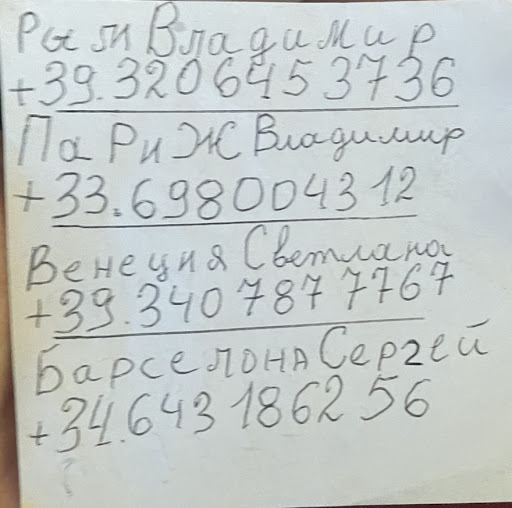 Рым Владимир
+39.3206453736
Париж Владимир
+33.698004312
Венеция Светлана
+39.3407877767
Барселона Сергей
+34.643186256